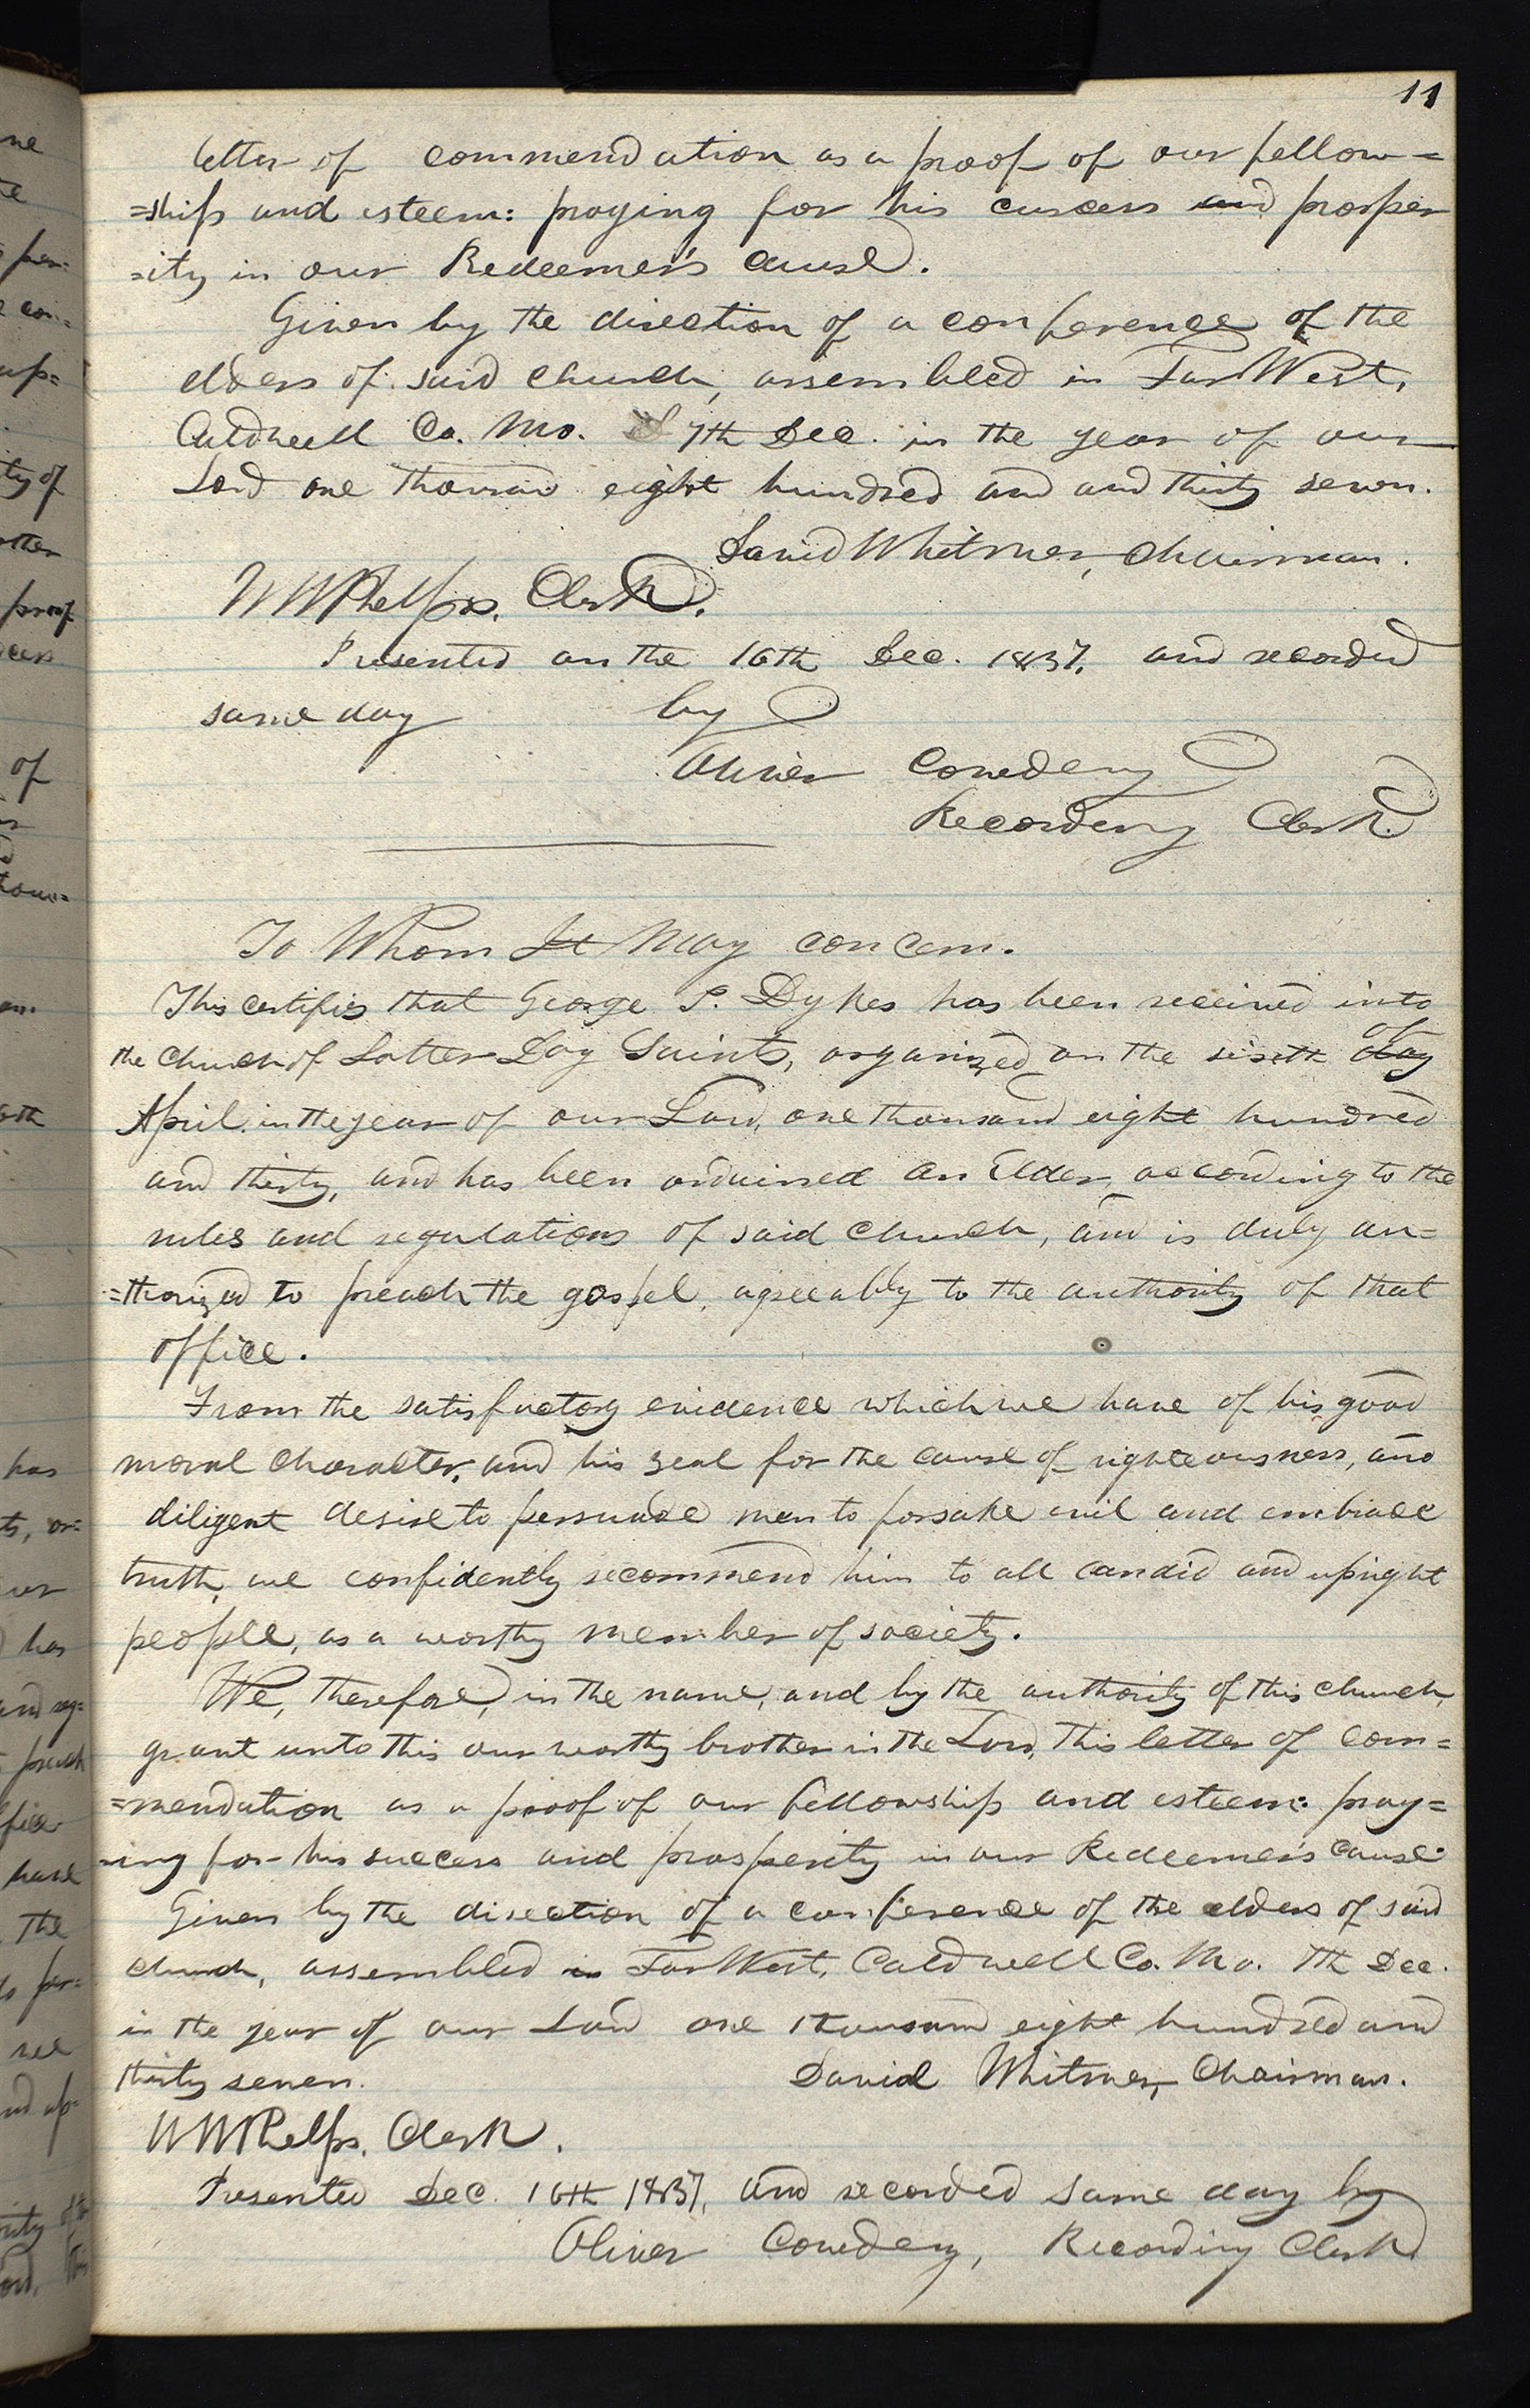 11
letter of commendation as a proof of our fellow=
=ship and esteem: praying for his success and prosper
=ity in our Redeemer's cause.
Given by the direction of a conference of the
elders of said church, assembled in Far West,
Caldwell Co. Mo. 7th Dec. in the year of our
Lord one thousand eight hundred and and thirty seven.
David Whitmer, Chairman.
W W Phelps. Clerk.
Presented on the 16th Dec. 1837, and recorded
same day by
Oliver Cowdery
Recording Clerk.
To Whom It May concern.
This certifies that George P. Dykes has been received into
the Church of Latter Day Saints, organized on the sixth day of
April in the year of our Lord, one thousand eight hundred
and thirty, and has been ordained an Elder, according to the
rules and regulations of said church, and is duly au=
=thorized to preach the gospel, agreeably to the authority of that
office.
From the satisfactory evidence which we have of his good
moral character, and his zeal for the cause of righteousness, and
diligent desire to persuade men to forsake evil and embrace
truth, we confidently recommend him to all candid and upright
people, as a worthy member of society.
We, therefore, in the name, and by the authority of this church,
grant unto this our worthy brother in the Lord, this letter of com=
=mendation as a proof of our fellowship and esteem: pray=
=ing for his success and prosperity in our Redeemer's cause.
Given by the direction of a conference of the elders of said
church, assembled in Far West, Caldwell Co. Mo. 7th Dec.
in the year of our Lord one thousand eight hundred and
thirty seven. David Whitmer, Chairman.
W W Phelps. Clerk.
Presented Dec. 16th 1837, and recorded same day by
Oliver Cowdery, Recording Clerk